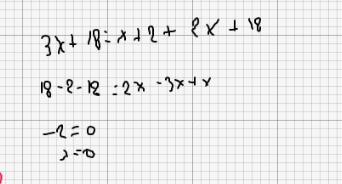 3x+18=x+2+2x+18
18-2-18=2x-3x+x
-2=0
2=0